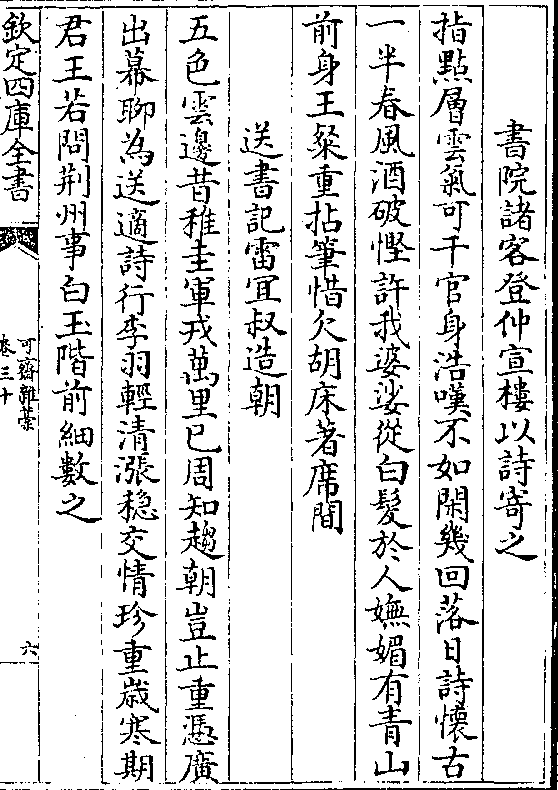 書院諸客登仲宣樓以詩寄之
指點層雲氣可干官身浩嘆不如閑幾回落日詩懷古
一半春風酒破慳許我婆娑從白髮於人嫵媚有青山
前身王粲重拈筆惜欠胡床著席間
送書記雷宜叔造朝
五色雲邊昔稚圭軍戎萬里已周知趨朝豈止重憑廣
出幕聊為送適詩行李羽輕清漲穏交情珍重歳寒期
君王若問荆州事白玉階前細數之
欽定四庫全書
可齋雜藁
卷三十
六